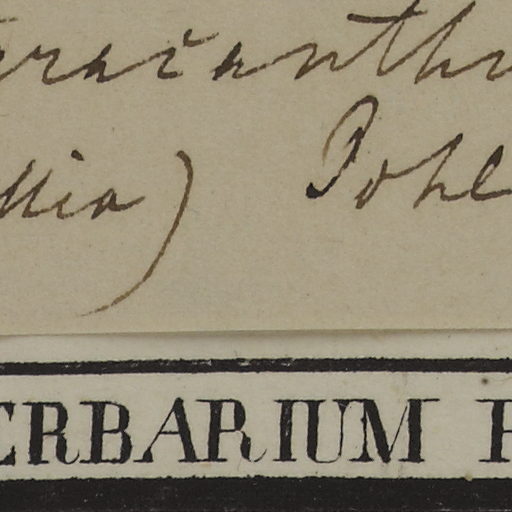 racanthu
llia) Pohl
ERBARIUM